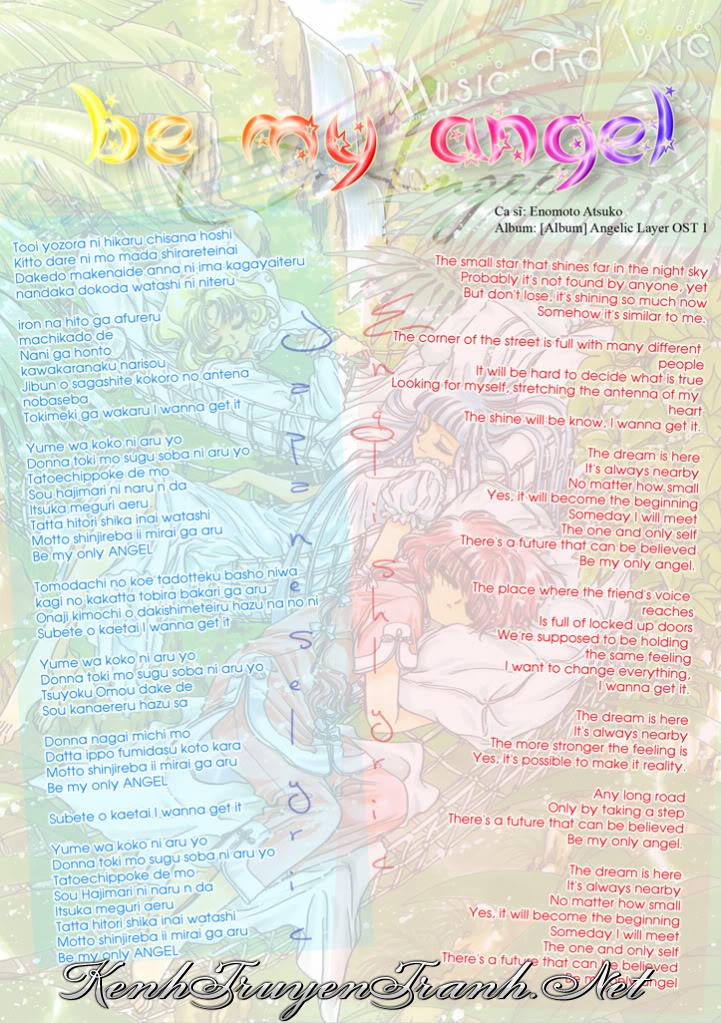 Music and lyric
be my angel
Ca sĩ: Enomoto Atsuko
Album: [Album] Angelic Layer OST 1
Japanese lyric
Tooi yozora ni hikaru chisana hoshi
Kitto dare ni mo mada shirareteinai
Dakedo makenaide anna ni ima kagayaiteru
nandaka dokoda watashi ni niteru
iron na hito ga afureru
machikado de
Nani ga honto
kawakaranaku narisou
Jibun o sagashite kokoro no antena
nobaseba
Tokimeki ga wakaru I wanna get it
Yume wa koko ni aru yo
Donna toki mo sugu soba ni aru yo
Tatoechippoke de mo
Sou hajimari ni naru n da
Itsuka meguri aeru
Tatta hitori shika inai watashi
Motto shinjireba ii mirai ga aru
Be my only ANGEL
Tomodachi no koe tadotteku basho niwa
kagi no kakatta tobira bakari ga aru
Onaji kimochi o dakishimeteiru hazu na no ni
Subete o kaetai I wanna get it
Yume wa koko ni aru yo
Donna toki mo sugu soba ni aru yo
Tsuyoku Omou dake de
Sou kanaereru hazu sa
Donna nagai michi mo
Datta ippo fumidasu koto kara
Motto shinjireba ii mirai ga aru
Be my only ANGEL
Subete o kaetai I wanna get it
Yume wa koko ni aru yo
Donna toki mo sugu soba ni aru yo
Tatoechippoke de mo
Sou Hajimari ni naru n da
Itsuka meguri aeru
Tatta hitori shika inai watashi
Motto shinjireba ii mirai ga aru
Be my only ANGEL
English lyric
The small star that shines far in the night sky
Probably it's not found by anyone, yet
But don't lose, it's shining so much now
Somehow it's similar to me.
The corner of the street is full with many different
people
It will be hard to decide what is true
Looking for myself, stretching the antenna of my
heart
The shine will be know, I wanna get it.
The dream is here
It's always nearby
No matter how small
Yes, it will become the beginning
Someday I will meet
The one and only self
There's a future that can be believed
Be my only angel.
The place where the friend's voice
reaches
Is full of locked up doors
We're supposed to be holding
the same feeling
I want to change everything,
I wanna get it.
The dream is here
It's always nearby
The more stronger the feeling is
Yes, it's possible to make it reality.
Any long road
Only by taking a step
There's a future that can be believed
Be my only angel.
The dream is here
It's always nearby
No matter how small
Yes, it will become the beginning
Someday I will meet
The one and only self
There's a future that can be believed
my only angel
KenhTruyenTranh.Net